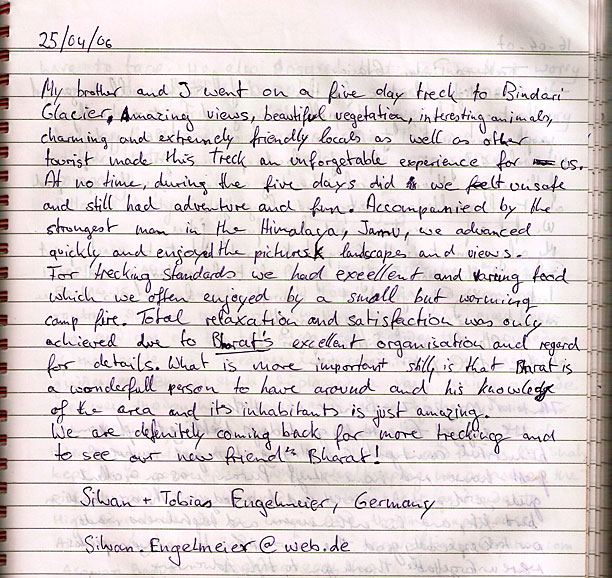 25/04/06
My brother and I went on a five day treck to Bindari
Glacier, Amazing views, beautiful vegetation, interesting animals,
charming and extremely friendly locals as well as other
tourist made this treck an unforgetable experience for us.
At no time, during the five days did we feelt unsafe
and still had adventure and fun. Accompanied by the
strongest man in the Himalaya, we advanced
quickly and enjoyed the pictures landscapes and views.
For trecking standards we had excellent and variing food
which we often enjoyed by a small but worming
camp fire. Total relaxation and satisfaction was only
achieved due to Bharat's excellent organisation and regard
for details. What is more important still, is that Bharat is
a wonderfull person to have around and his knowledge
of the area and its inhabitants is just amazing.
We are defenitely coming back for more trecking and
to see our new friend Bharat!
Silvan + Tobias Engelmeier, Germany
Silvan.Engelmeier@web.de